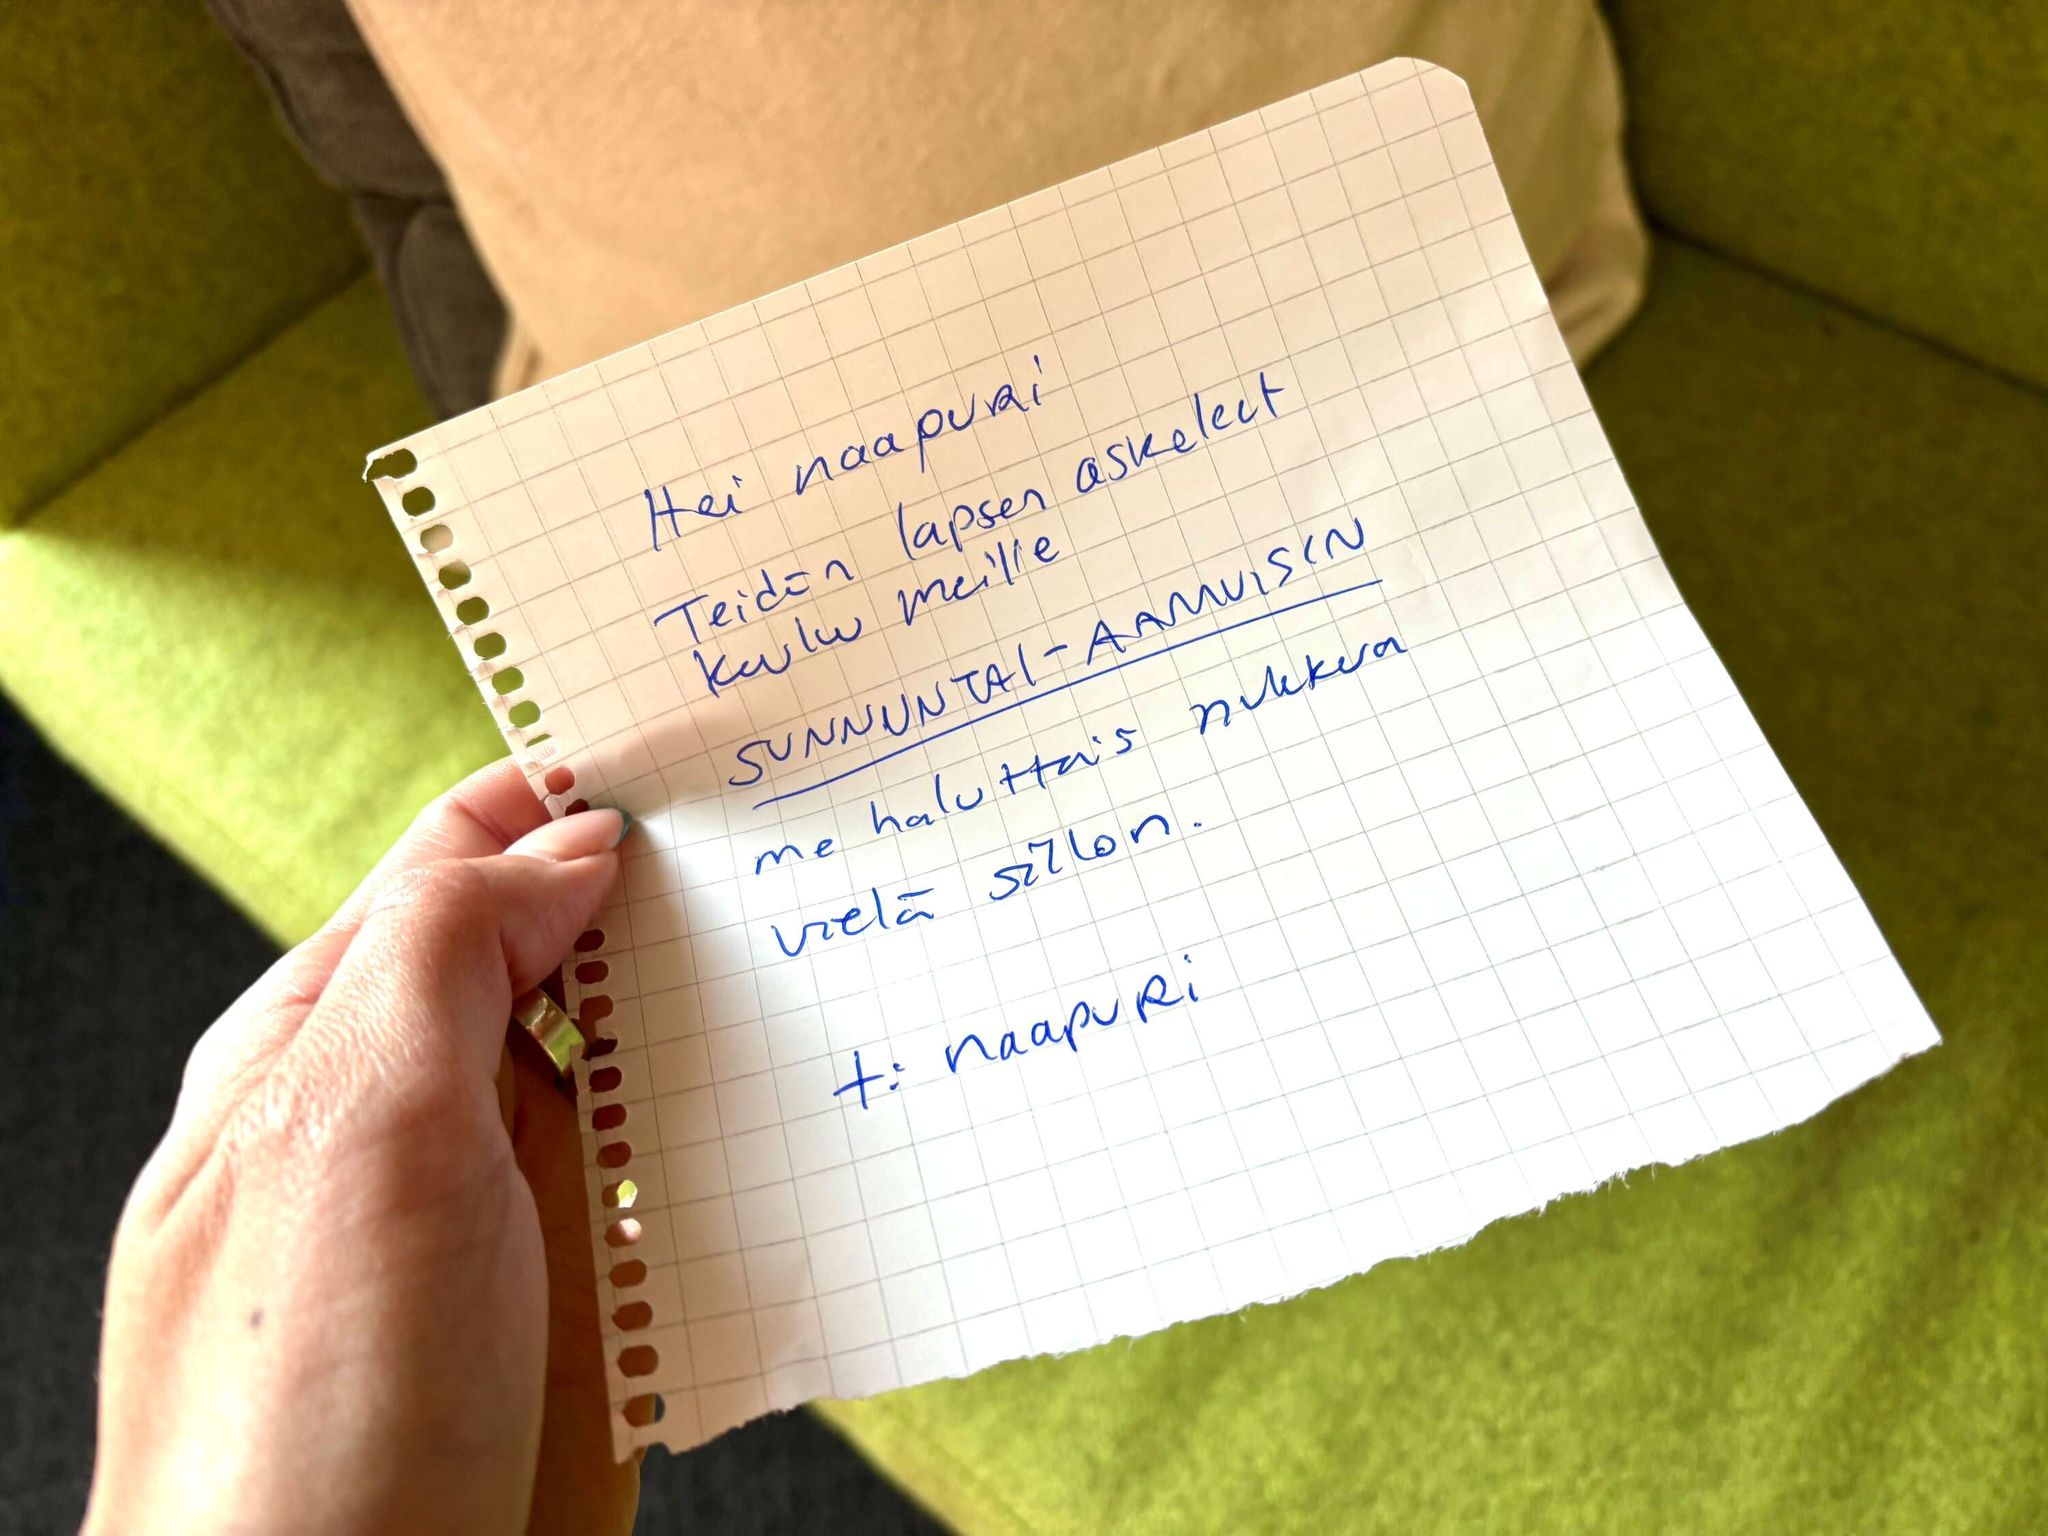 Hei naapuri
Teidän lapsen askeleet
kuluu meille
SUNNUNTAI-AAMUISIN
me haluttais nukkua
vielä sillon.
t: naapuri